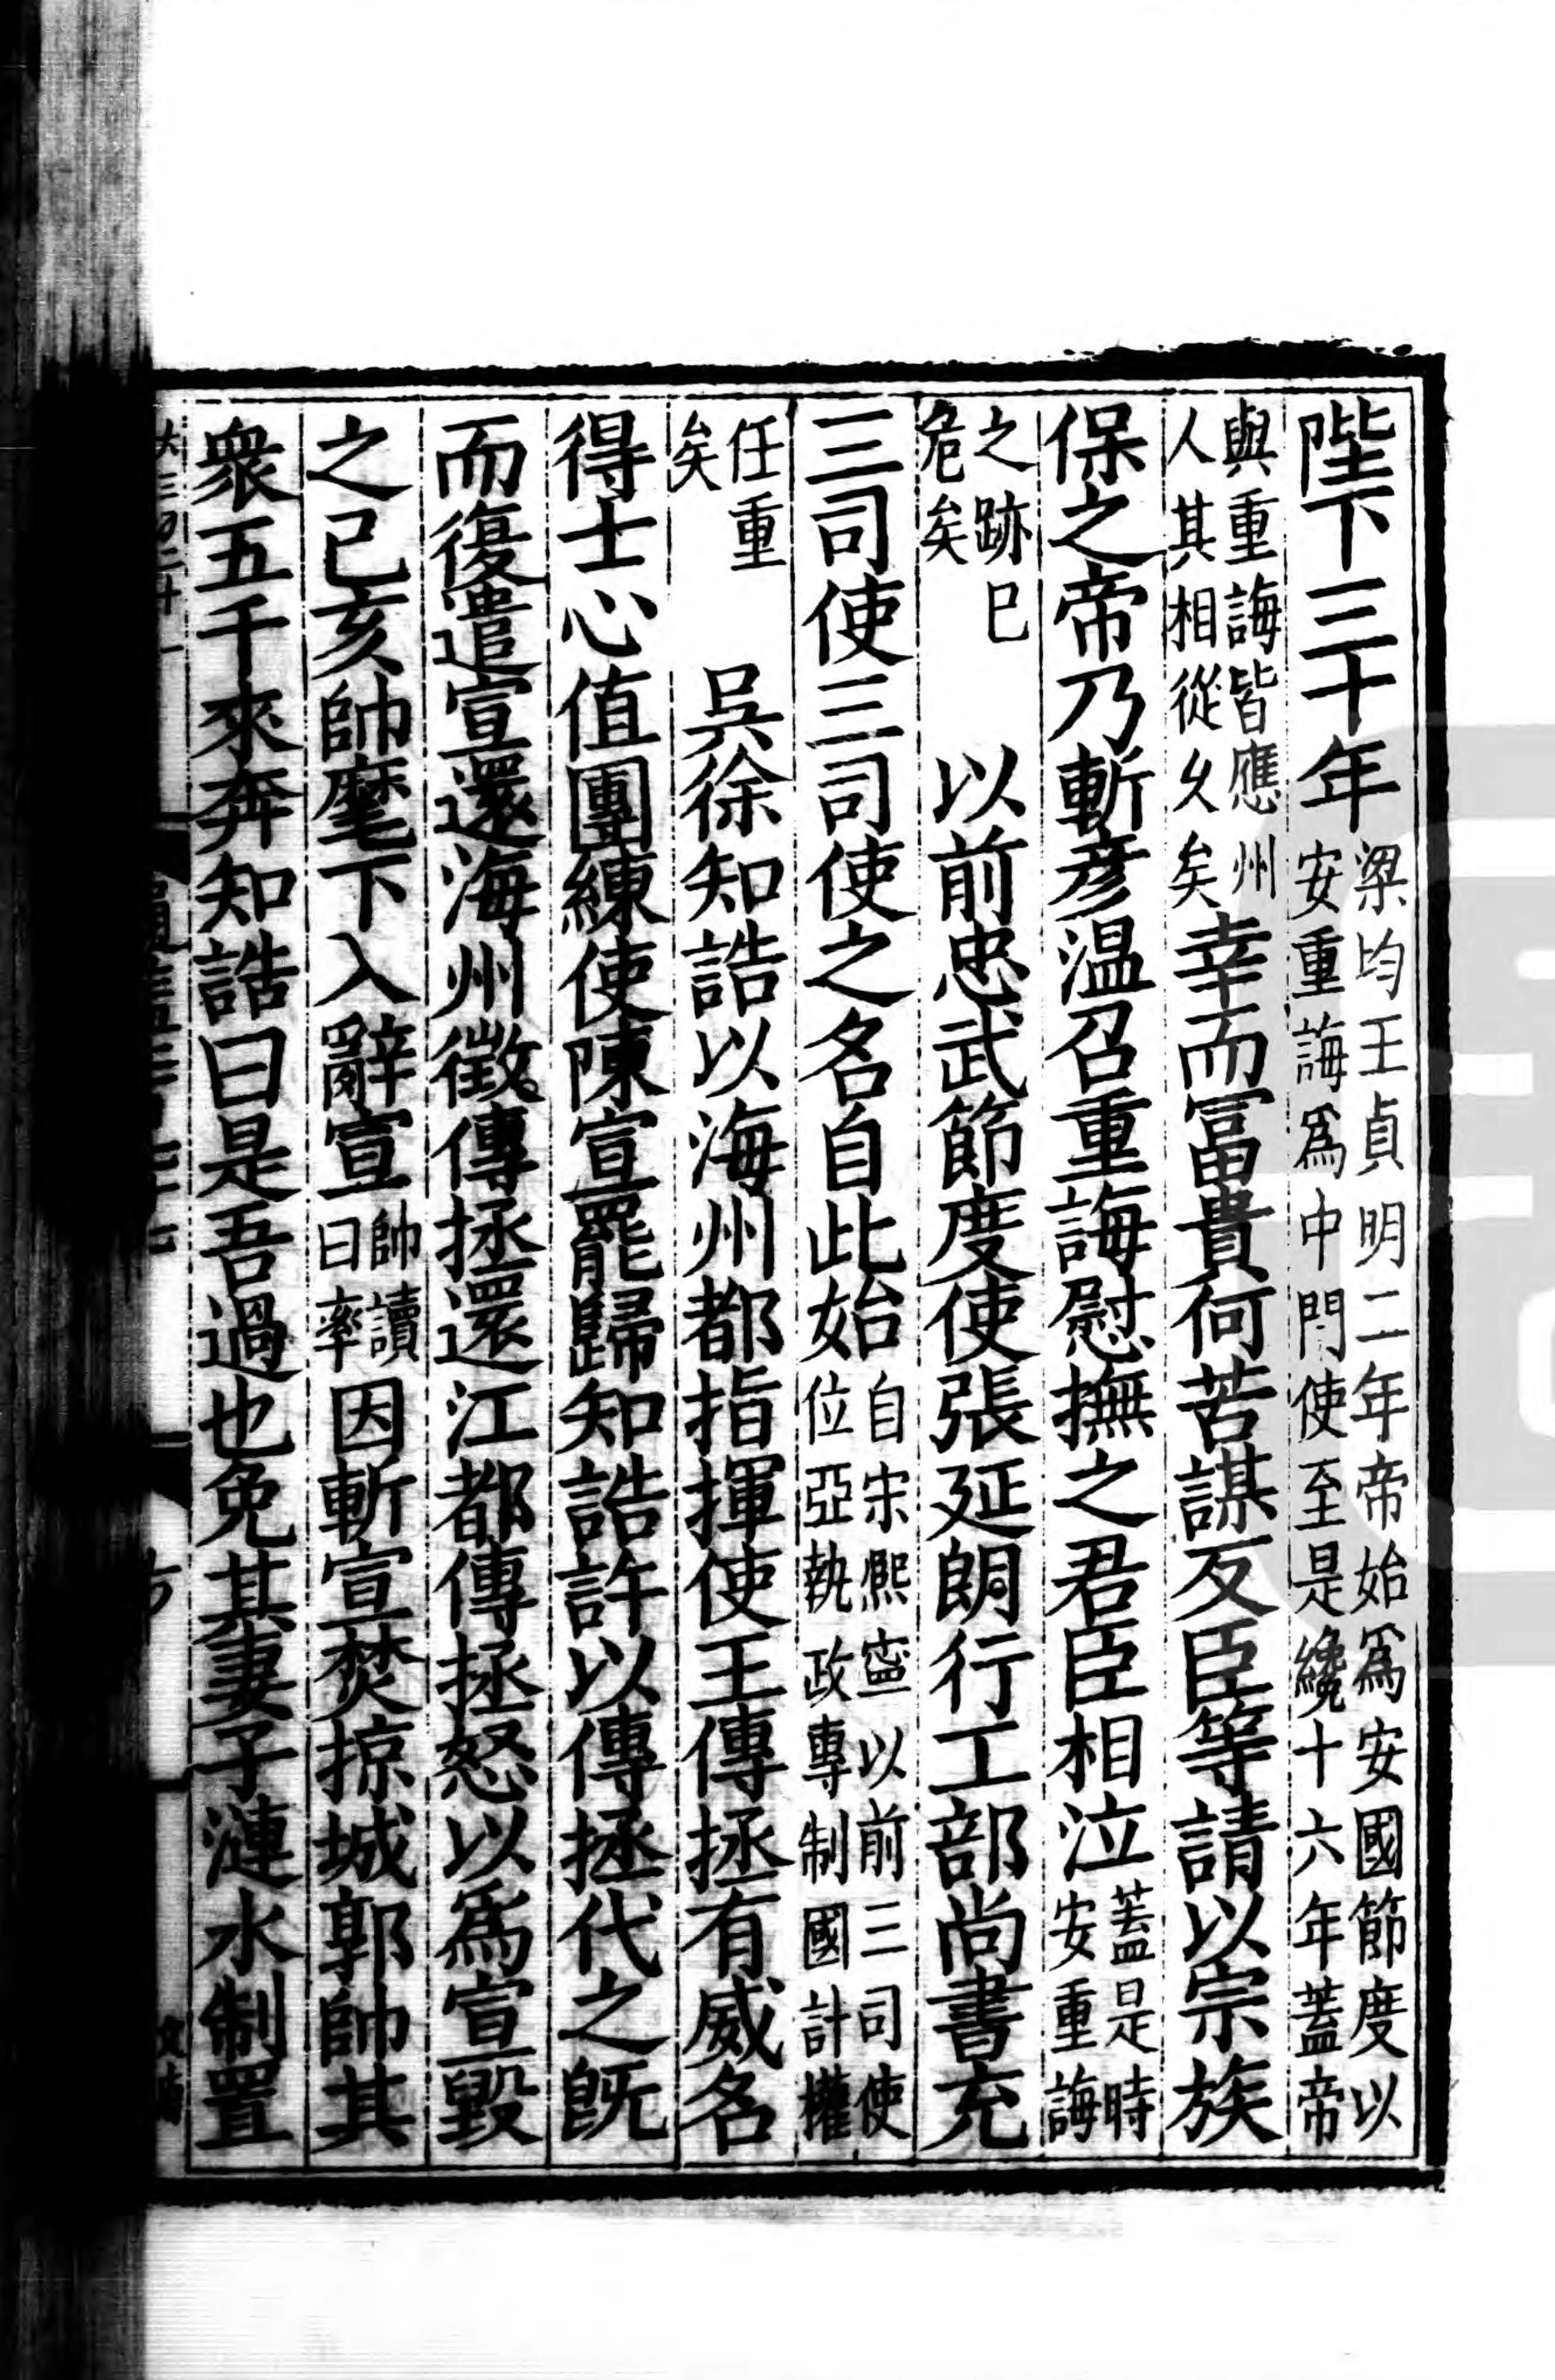 陛下三十年梁均王貞明二年帝始爲安國節度以安重誨爲中門使至是纔十六年蓋帝
與重誨皆應州人其相從久矣幸而富貴何苦謀反臣等請以宗族
保之帝乃斬彦温召重誨慰撫之君臣相泣蓋是時安重誨
之跡已危矣以前忠武節度使張延朗行工部尚書充
三司使三司使之名自此始自宋熈寧以前三司使位亞執政專制國計權
任重矣吳徐知誥以海州都指揮使王傳拯有威名
得士心值團練使陳宣罷歸知誥許以傳拯代之旣
而復遣宣還海州徵傳拯還江都傳拯怒以爲宣毀
之己亥帥麾下入辭宣帥讀曰率因斬宣焚掠城郭帥其
衆五千來奔知誥曰是吾過也免其妻子漣水制置